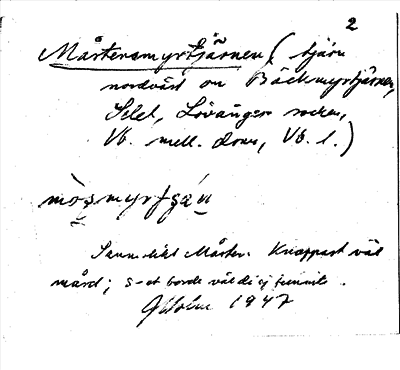 2
Mårtensmyrtjärnen (tjärn
nordväst om Bäckmyrtjärnen,
Selet, Lövångers socken,
Vb. mell. doms, Vb. l.)
Sannolikt Mårten. Knappast väl
mård; s-et borde väl då ej funnits.
GHolm 1947